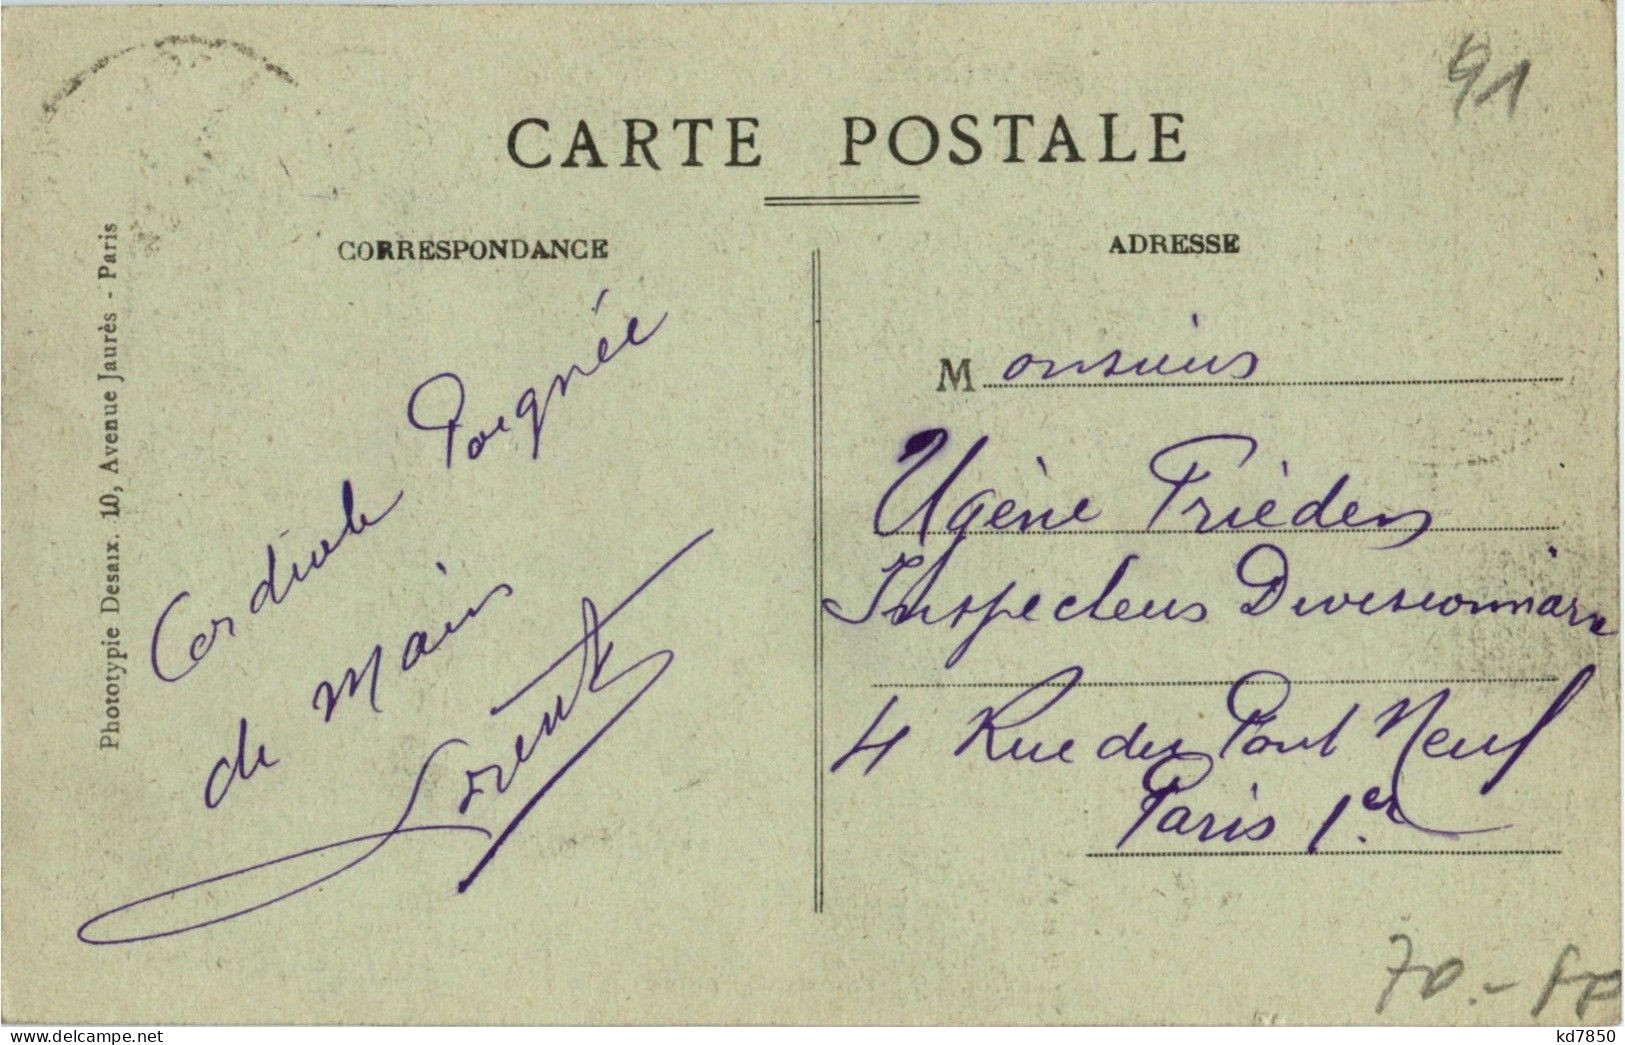 91
CARTE POSTALE
CORRESPONDANCE
ADRESSE
Phototypie Desaix. 10, Avenue Jaurès - Paris
Cordiale Poignée
de Main
Monsieur
Ugène Frièden
Inspecteur Divisionnaire
4 Rue du Pont Neuf
Paris 1er
70.-
kd7850